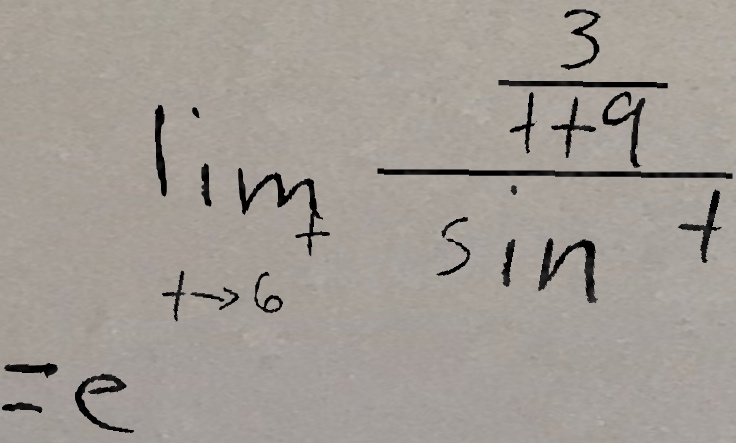 lim_{t→6^+} \frac{\frac{3}{t+9}}{sin t}
=e